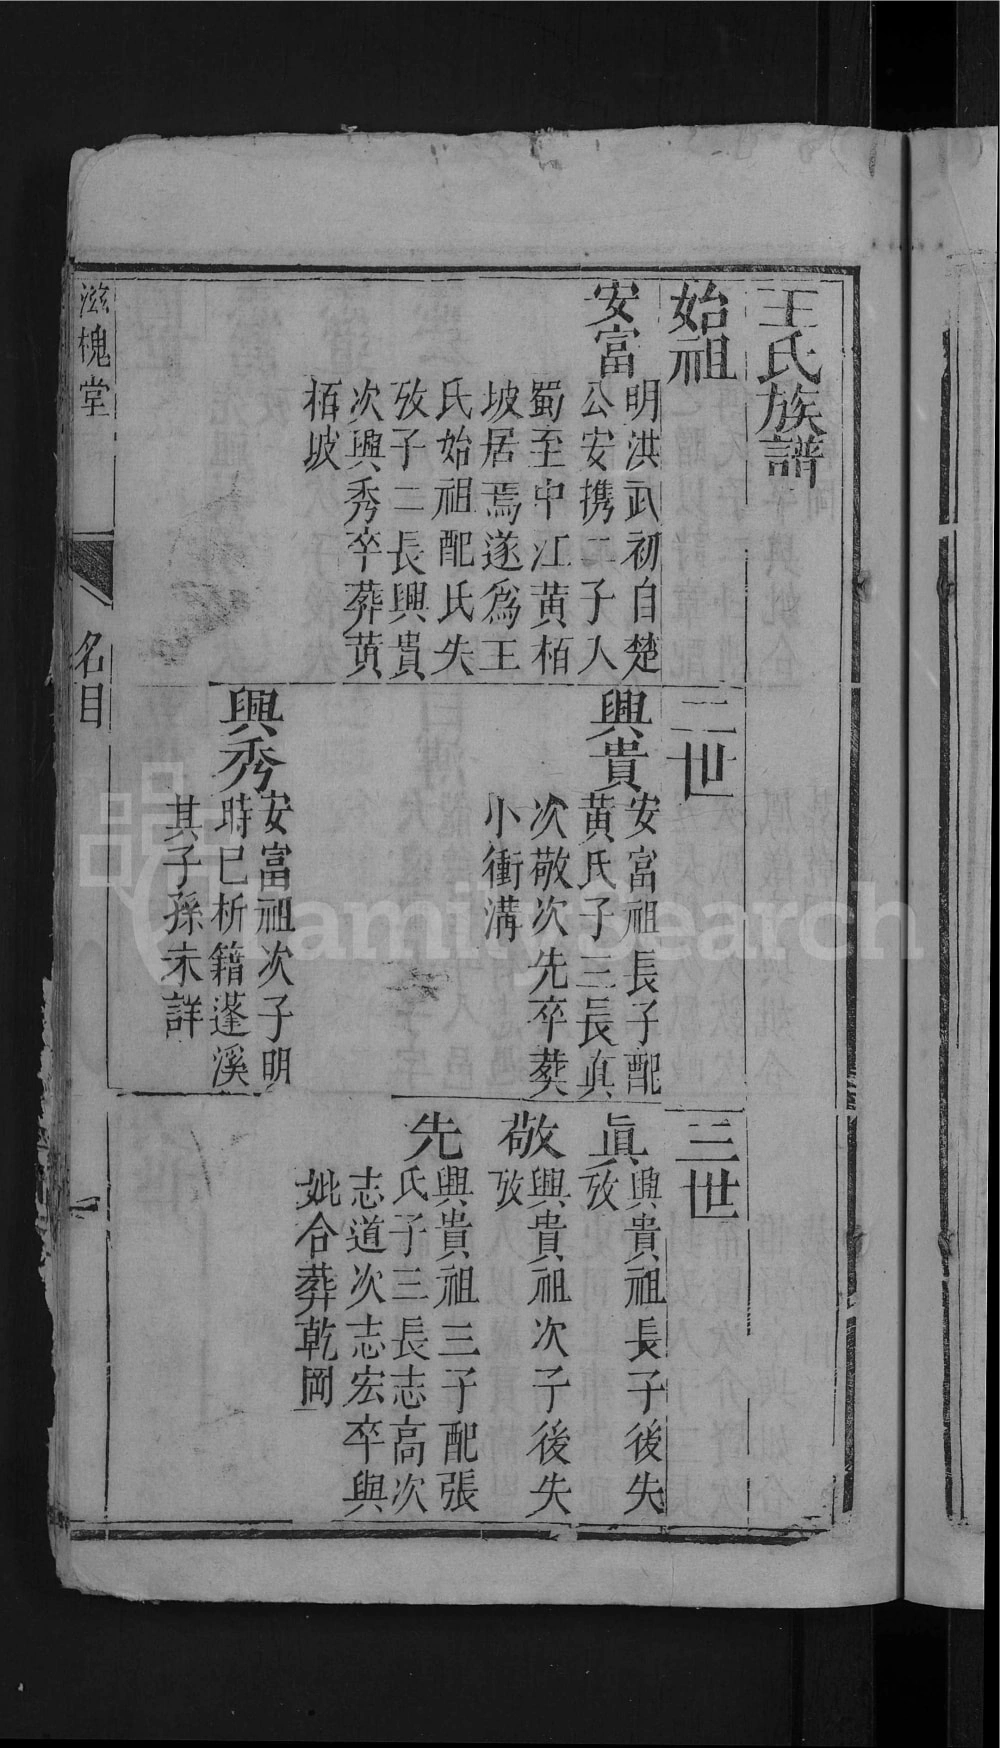 王氏族譜
始祖
安富
明洪武初自楚
公安携二子人
蜀至中江黄栢
坡居焉遂爲王
氏始祖配氏失
攷子二長興貴
次興秀卒葬黄
栢坡
二世
興貴
安富祖長子配
黄氏子三長眞
次敬次先卒葬
小衝溝
興秀
安富祖次子明
時已析籍蓬溪
其子孫未詳
三世
眞
興貴祖長子後失
攷
敬
興貴祖次子後失
攷
先
興貴祖三子配張
氏子三長志高次
志道次志宏卒與
妣合葬乾岡
滋槐堂
名目
一
FamilySearch